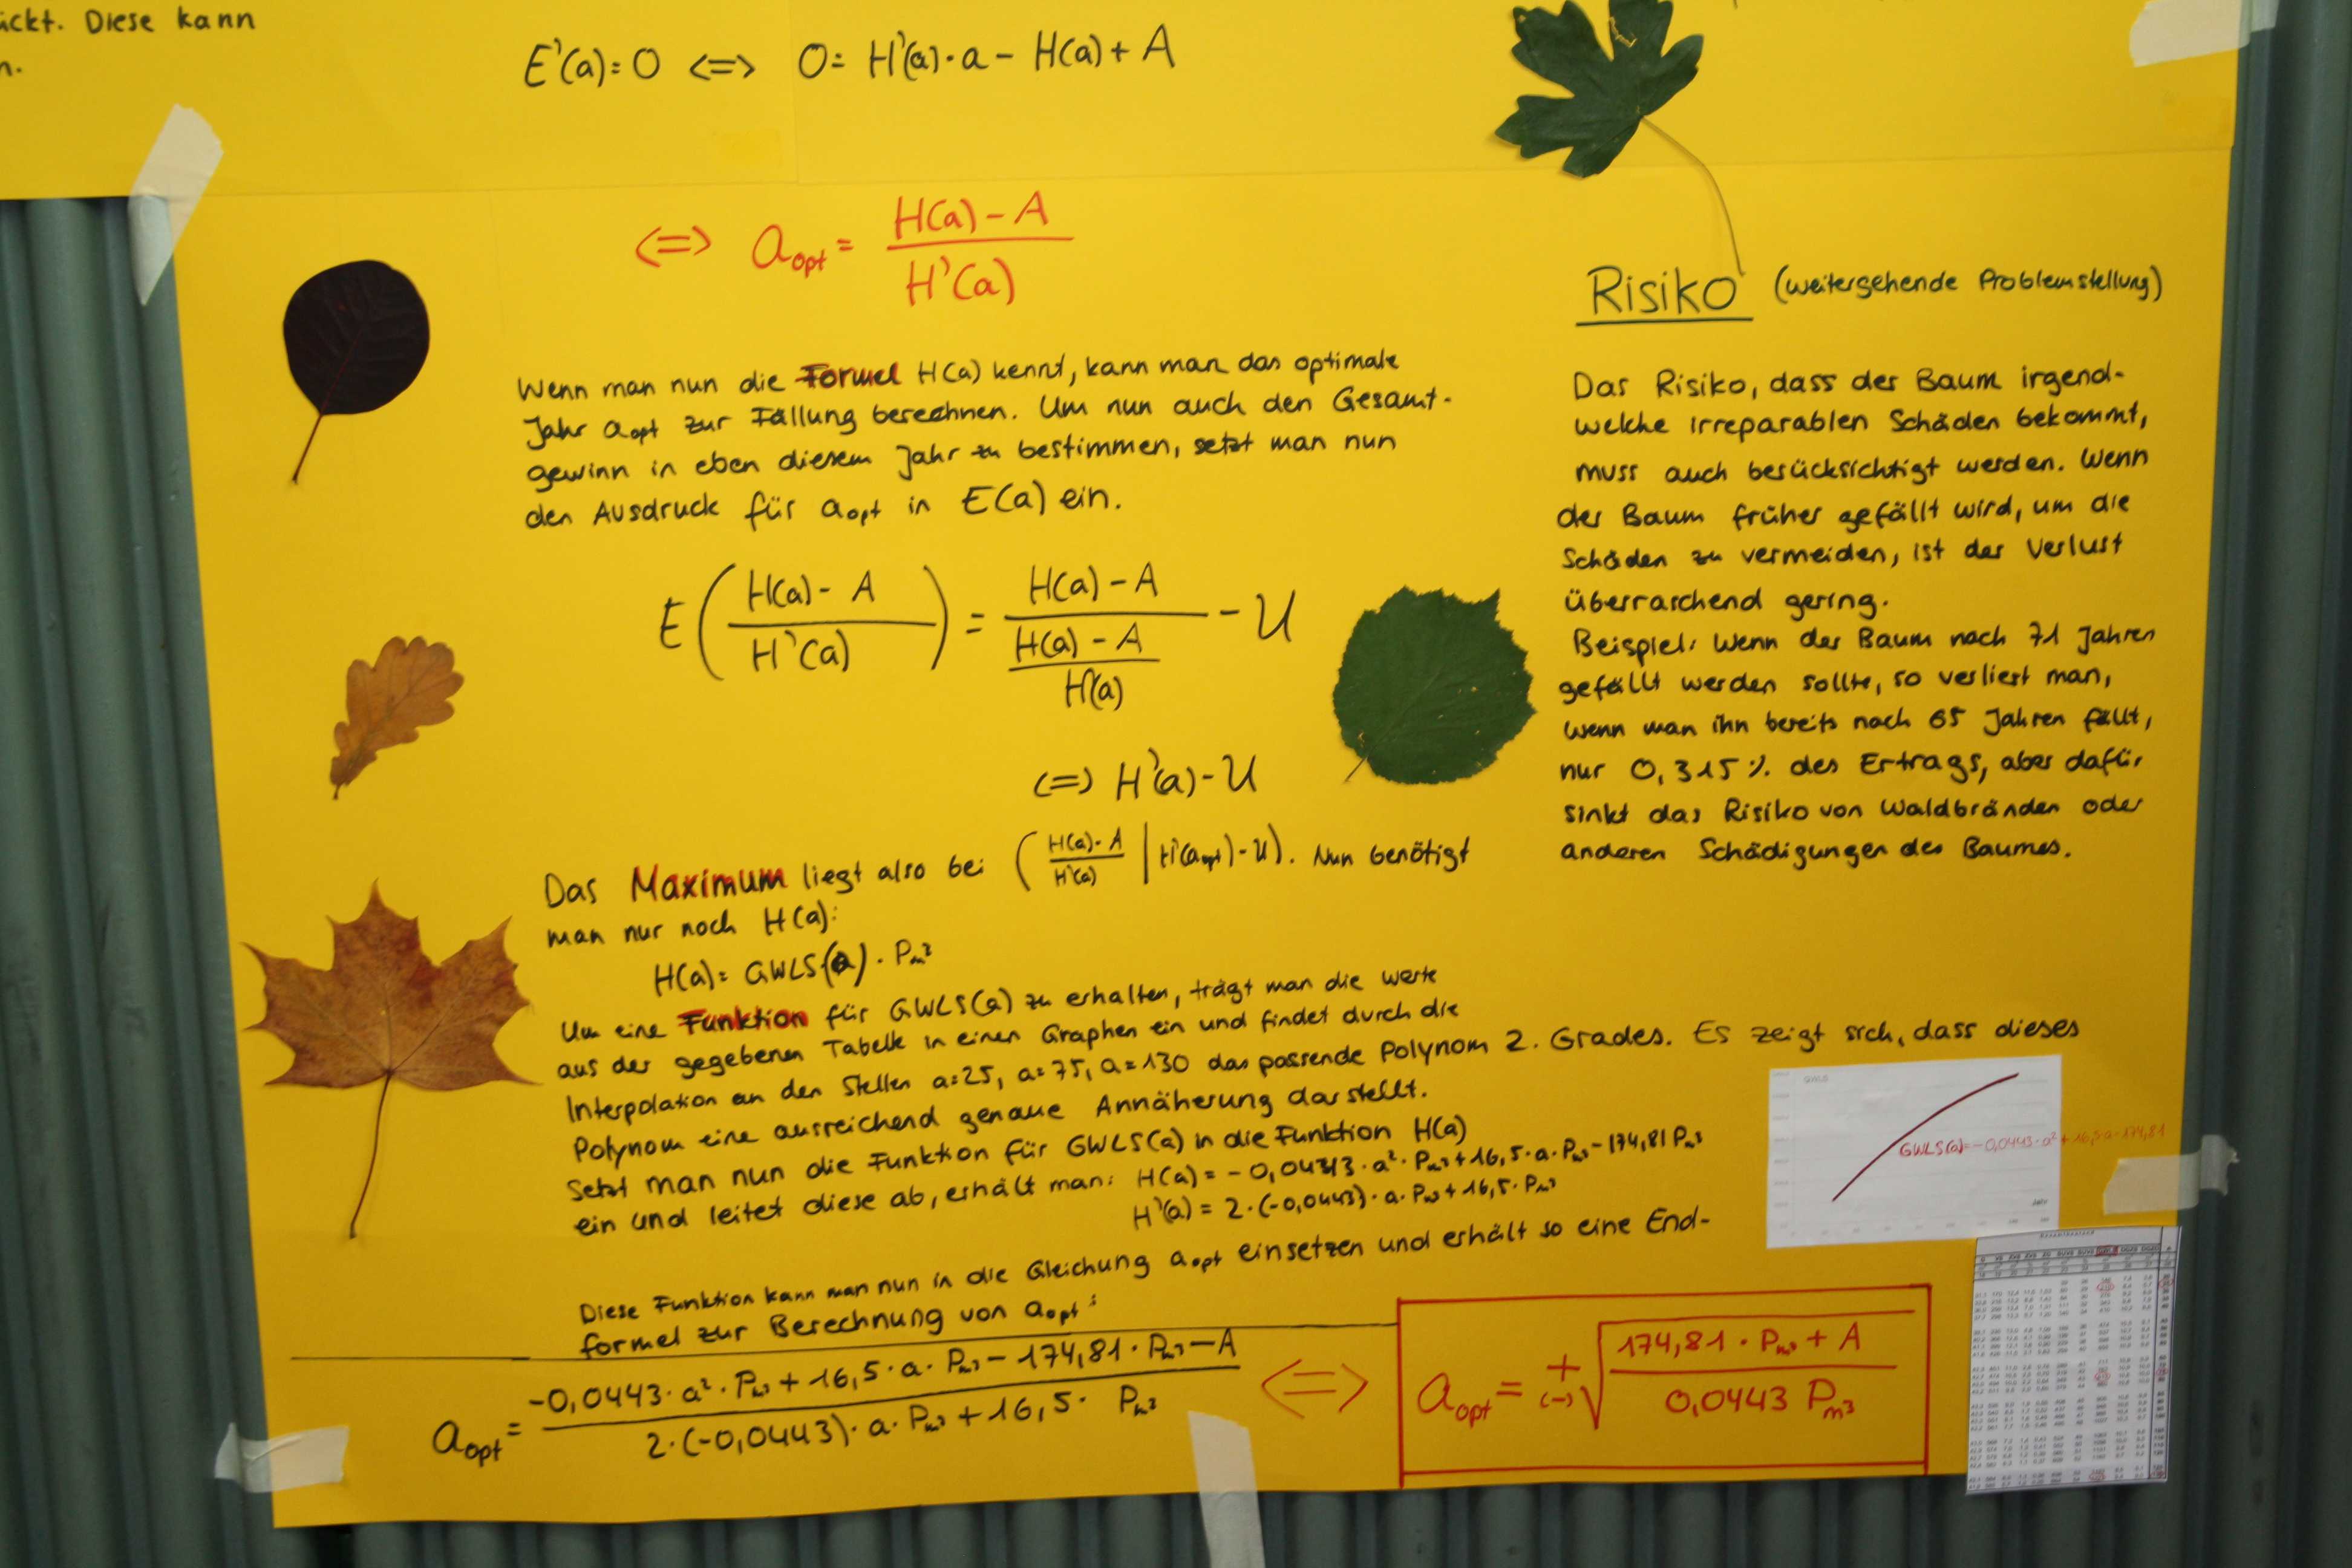 ückt. Diese kann
n.
E'(a)=0 <=> 0= H'(a)·a - H(a) + A
<=> a_opt = (H(a) - A) / H'(a)
Wenn man nun die Formel H(a) kennt, kann man das optimale
Jahr a_opt zur Fällung berechnen. Um nun auch den Gesamt-
gewinn in eben diesem Jahr zu bestimmen, setzt man nun
den Ausdruck für a_opt in E(a) ein.
E((H(a) - A) / H'(a)) = (H(a) - A) / ((H(a) - A) / H'(a)) - U
<=> H'(a) - U
Das Maximum liegt also bei ((H(a) - A) / H'(a) | H'(a_opt) - U). Nun benötigt
man nur noch H(a):
H(a) = GWLS(a) · P_m³
Um eine Funktion für GWLS(a) zu erhalten, trägt man die Werte
aus der gegebenen Tabelle in einen Graphen ein und findet durch die
Interpolation an den Stellen a=25, a=75, a=130 das passende Polynom 2. Grades. Es zeigt sich, dass dieses
Polynom eine ausreichend genaue Annäherung darstellt.
Setzt man nun die Funktion für GWLS(a) in die Funktion H(a)
ein und leitet diese ab, erhält man: H(a) = -0,0443·a²·P_m³ + 16,5·a·P_m³ - 174,81 P_m³
H'(a) = 2·(-0,0443)·a·P_m³ + 16,5·P_m³
Diese Funktion kann man nun in die Gleichung a_opt einsetzen und erhält so eine End-
formel zur Berechnung von a_opt:
a_opt = (-0,0443·a²·P_m³ + 16,5·a·P_m³ - 174,81·P_m³ - A) / (2·(-0,0443)·a·P_m³ + 16,5·P_m³) <=> a_opt = +(-) √((174,81·P_m³ + A) / (0,0443 P_m³))
Risiko (weitergehende Problemstellung)
Das Risiko, dass der Baum irgend-
welche irreparablen Schäden bekommt,
muss auch berücksichtigt werden. Wenn
der Baum früher gefällt wird, um die
Schäden zu vermeiden, ist der Verlust
überraschend gering.
Beispiel: Wenn der Baum nach 71 Jahren
gefällt werden sollte, so verliert man,
wenn man ihn bereits nach 65 Jahren fällt,
nur 0,315% des Ertrags, aber dafür
sinkt das Risiko von Waldbränden oder
anderen Schädigungen des Baumes.
GWLS
GWLS(a) = -0,0443·a² + 16,5·a - 174,81
Jahr